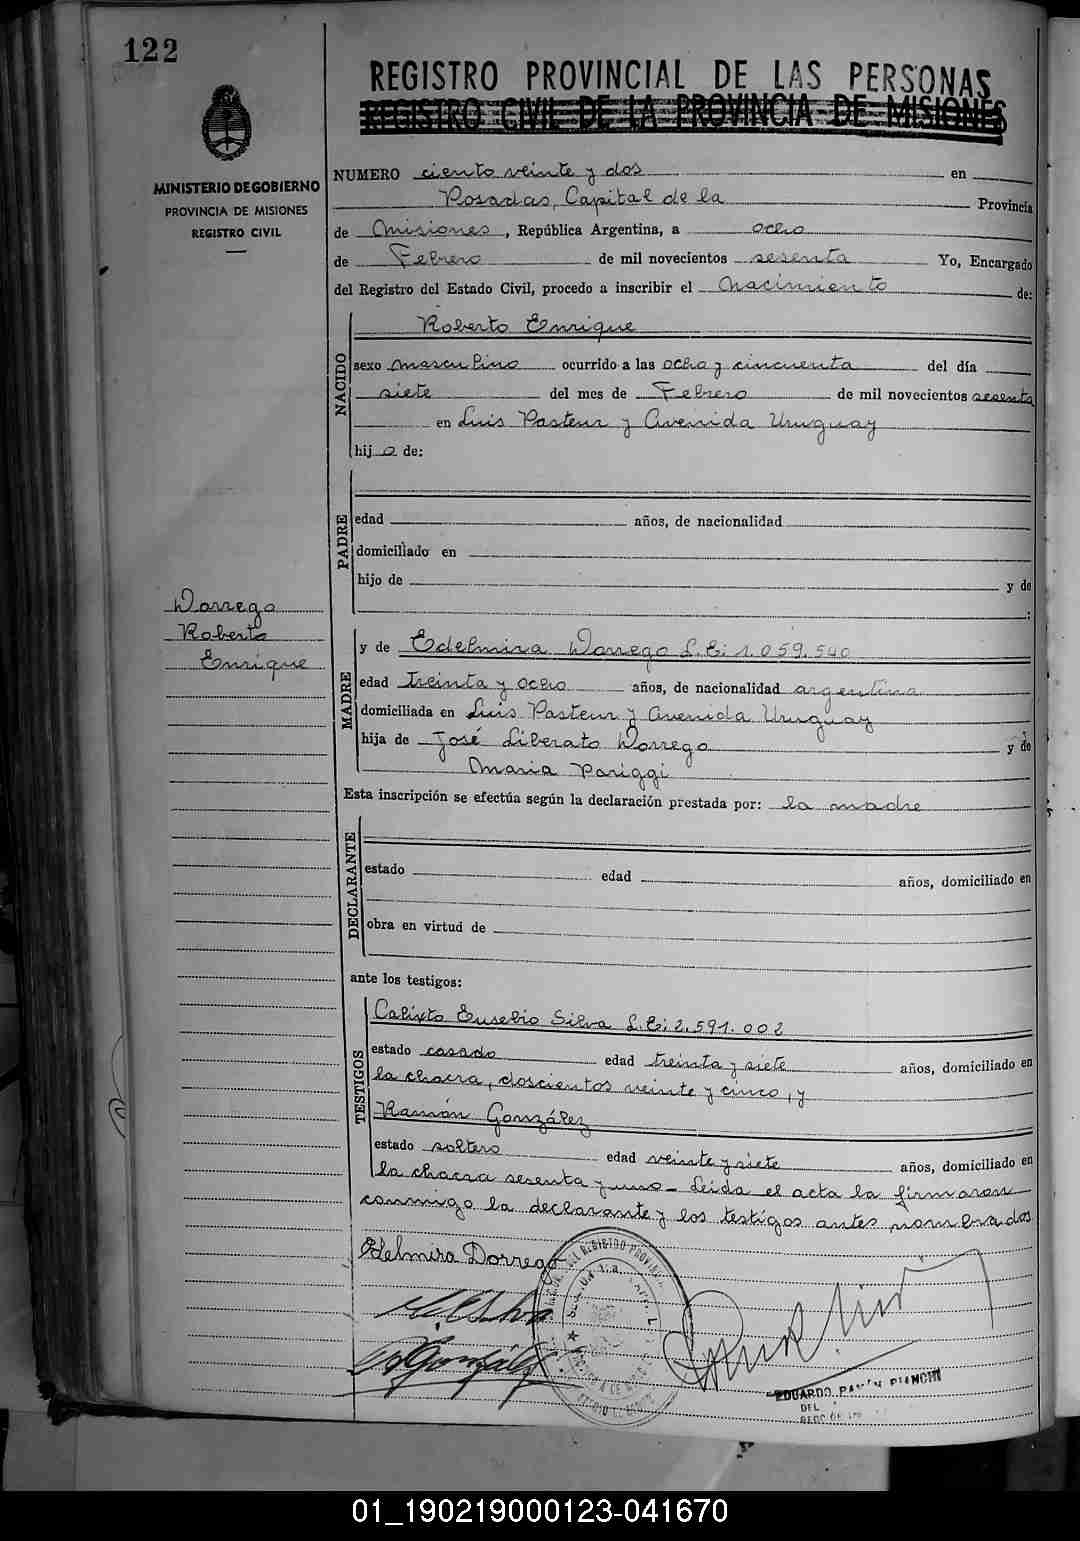 122
REGISTRO PROVINCIAL DE LAS PERSONAS
REGISTRO CIVIL DE LA PROVINCIA DE MISIONES
MINISTERIO DE GOBIERNO
PROVINCIA DE MISIONES
REGISTRO CIVIL
NUMERO ciento veinte y dos en
Posadas, Capital de la Provincia
de Misiones, República Argentina, a ocho
de Febrero de mil novecientos sesenta Yo, Encargado
del Registro del Estado Civil, procedo a inscribir el nacimiento de:
NACIDO
Roberto Enrique
sexo masculino ocurrido a las ocho y cincuenta del día
siete del mes de Febrero de mil novecientos sesenta
en Luis Pasteur y Avenida Uruguay
hijo de:
PADRE
edad años, de nacionalidad
domiciliado en
hijo de y de
:
Dorrego
Roberto
Enrique
MADRE
y de Edelmira Dorrego L.E: 1.059.540
edad treinta y ocho años, de nacionalidad argentina
domiciliada en Luis Pasteur y Avenida Uruguay
hija de José Liberato Dorrego y de
Maria Pariggi
Esta inscripción se efectúa según la declaración prestada por: la madre
DECLARANTE
estado edad años, domiciliado en
obra en virtud de
ante los testigos:
TESTIGOS
Calixto Eusebio Silva L.E: 2.591.002
estado casado edad treinta y siete años, domiciliado en
la chacra, doscientos veinte y cinco, y
Ramón González
estado soltero edad veinte y siete años, domiciliado en
la chacra sesenta y uno - Leída el acta la firmaron
conmigo la declarante y los testigos antes nombrados
Edelmira Dorrego
González
EDUARDO RAMÓN BIANCHI
DEL
01_190219000123-041670